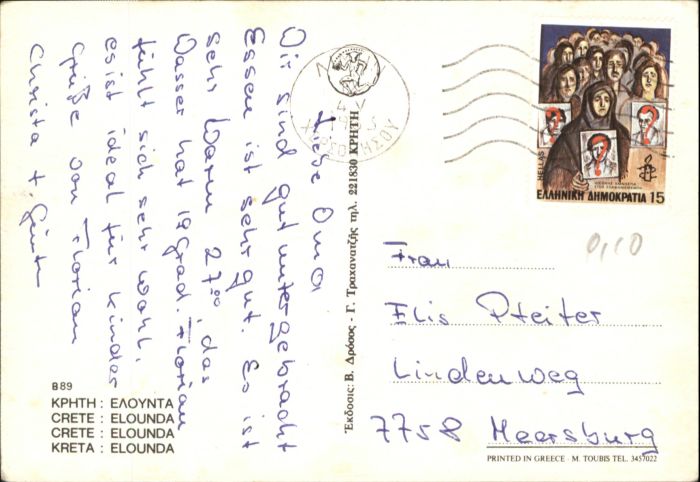 Liebe Oma
Wir sind gut untergebracht
Essen ist sehr gut. Es ist
sehr warm 27°°, das
Wasser hat 19 Grad. Florian
fühlt sich sehr wohl.
es ist ideal für Kinder
Grüße von Florian
Christa + Günter
B 89
ΚΡΗΤΗ : ΕΛΟΥΝΤΑ
CRETE : ELOUNDA
CRETE : ELOUNDA
KRETA : ELOUNDA
Έκδοσις: Β. Δρόσος - Γ. Τραχανατζής τηλ. 221830 ΚΡΗΤΗ
HELLAS
ΕΛΛΗΝΙΚΗ ΔΗΜΟΚΡΑΤΙΑ 15
0,10
Frau
Elis Pfeifer
Lindenweg
7758 Meersburg
PRINTED IN GREECE - M. TOUBIS TEL. 3457022